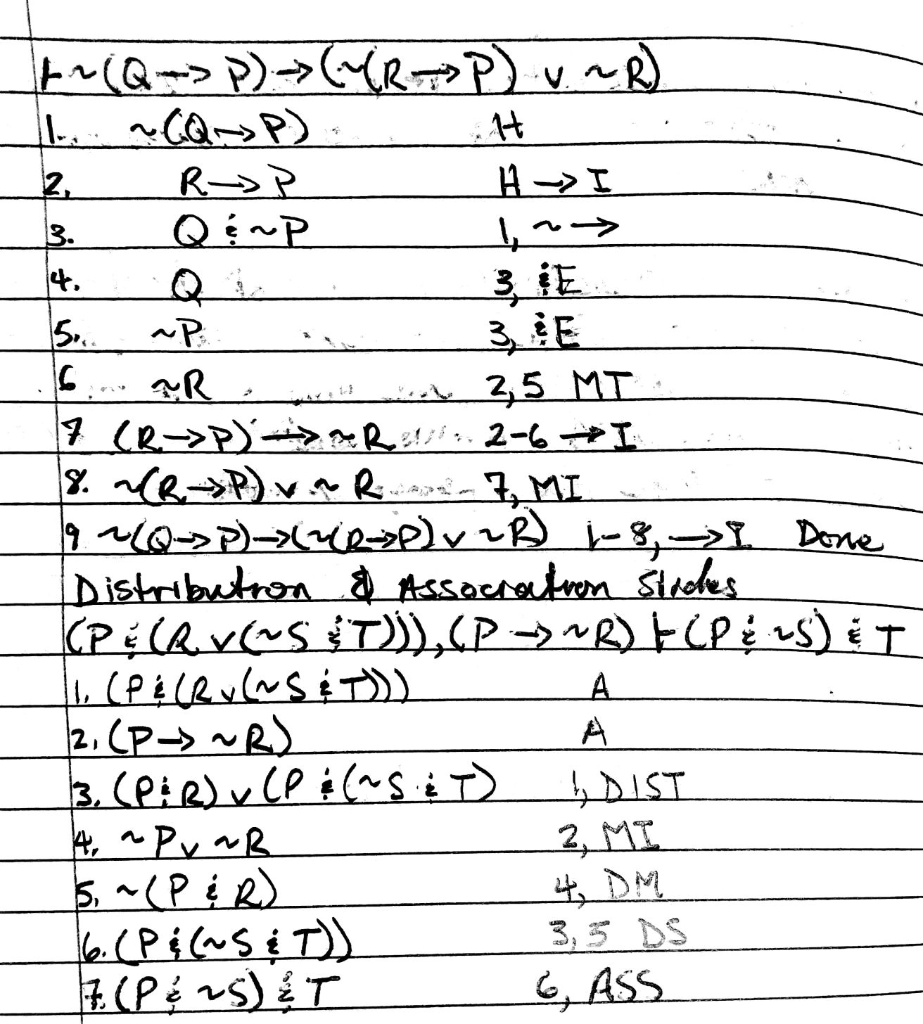 ⊢ ~(Q → P) → (~(R → P) v ~R)
1. ~(Q → P) H
2, R → P H → I
3. Q & ~P 1, ~→
4. Q 3, &E
5. ~P 3, &E
6 ~R 2,5 MT
7 (R → P) → ~R 2-6 → I
8. ~(R → P) v ~R 7, MI
9 ~(Q → P) → (~(R → P) v ~R) 1-8, → I Done
Distribution & Association
(P & (R v (~S & T))), (P → ~R) ⊢ (P & ~S) & T
1. (P & (R v (~S & T))) A
2. (P → ~R) A
3. (P & R) v (P & (~S & T) 1, DIST
4. ~P v ~R 2, MI
5, ~(P & R) 4, DM
6. (P & (~S & T)) 3,5 DS
7. (P & ~S) & T 6, ASS